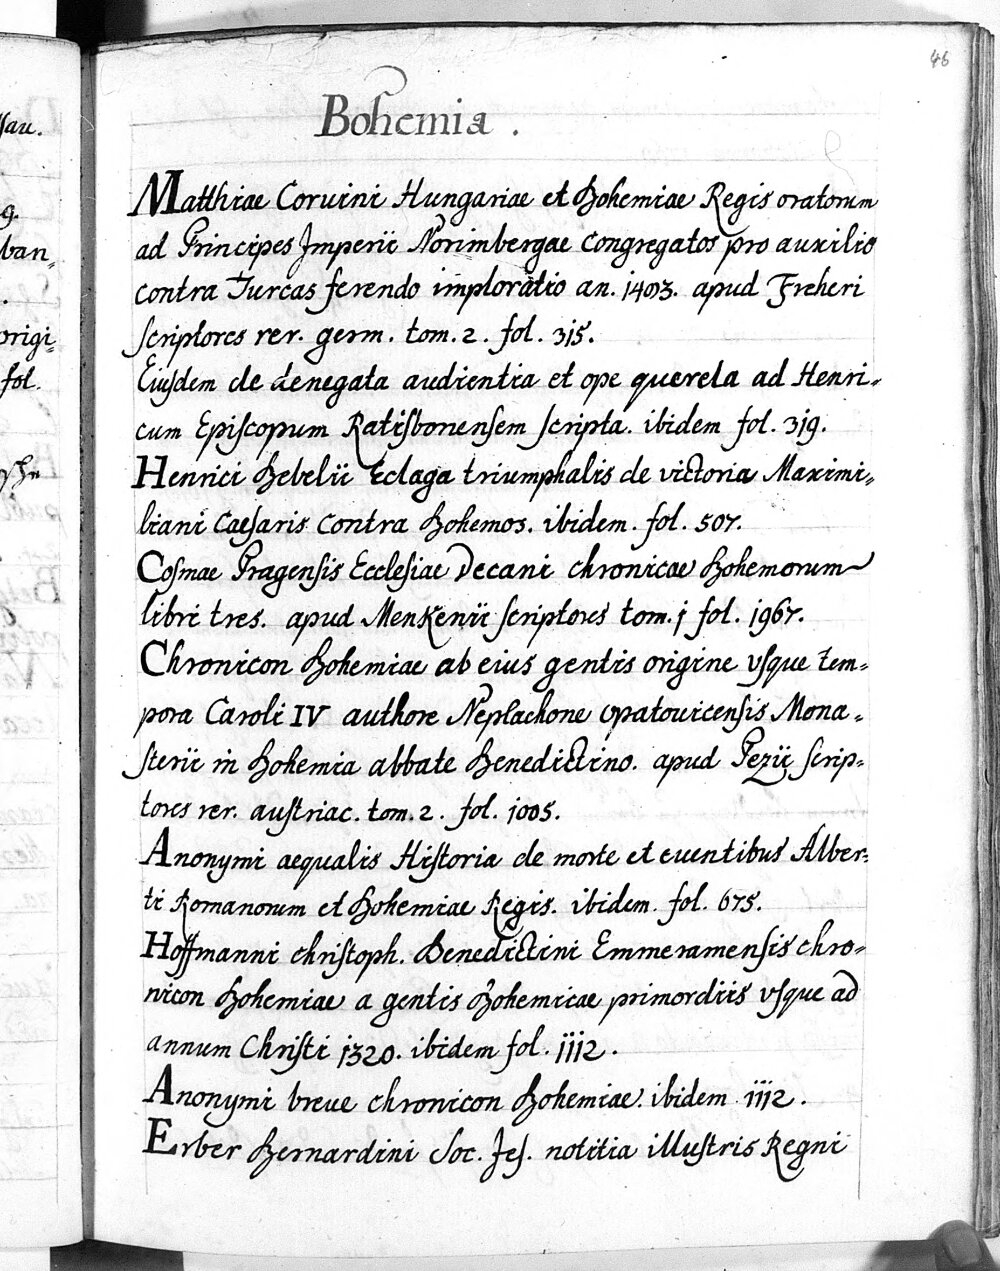 sau.
g.
ban„
origi„
fol.
46
Bohemia.
Matthiae Coruini Hungariae et Bohemiae Regis oratorum
ad Principes Imperii Norimbergae congregatos pro auxilio
contra Turcas ferendo imploratio an. apud Freheri
scriptores rer. germ. tom. 2. fol. 315.
Eiusdem de denegata audientia et ope querela ad Henri„
cum Episcopum Ratisbonensem scripta. ibidem fol. 319.
Henrici Bebelii Eclaga triumphalis de victoria Maximi„
liani Caesaris contra Bohemos. ibidem. fol. 507.
Cosmae Pragensis Ecclesiae Decani chronicae Bohemorum
libri tres. apud Menkenii scriptores tom. 1 fol. 1967.
Chronicon Bohemiae ab eius gentis origine vsque tem„
pora Caroli IV authore Neplachone opatouicensis Mona„
sterii in Bohemia abbate Benedictino. apud Pezii scrip„
tores rer. austriac. tom. 2. fol. 1005.
Anonymi aequalis Historia de morte et euentibus Alber„
ti Romanorum et Bohemiae Regis. ibidem. fol. 675.
Hoffmanni christoph. Benedictini Emmeramensis chro„
nicon Bohemiae a gentis Bohemicae primordiis vsque ad
annum Christi 1320. ibidem fol. 1112.
Anonymi breue chronicon Bohemiae. ibidem 1112.
Erber Bernardini Soc. Jes. notitia illustris Regni